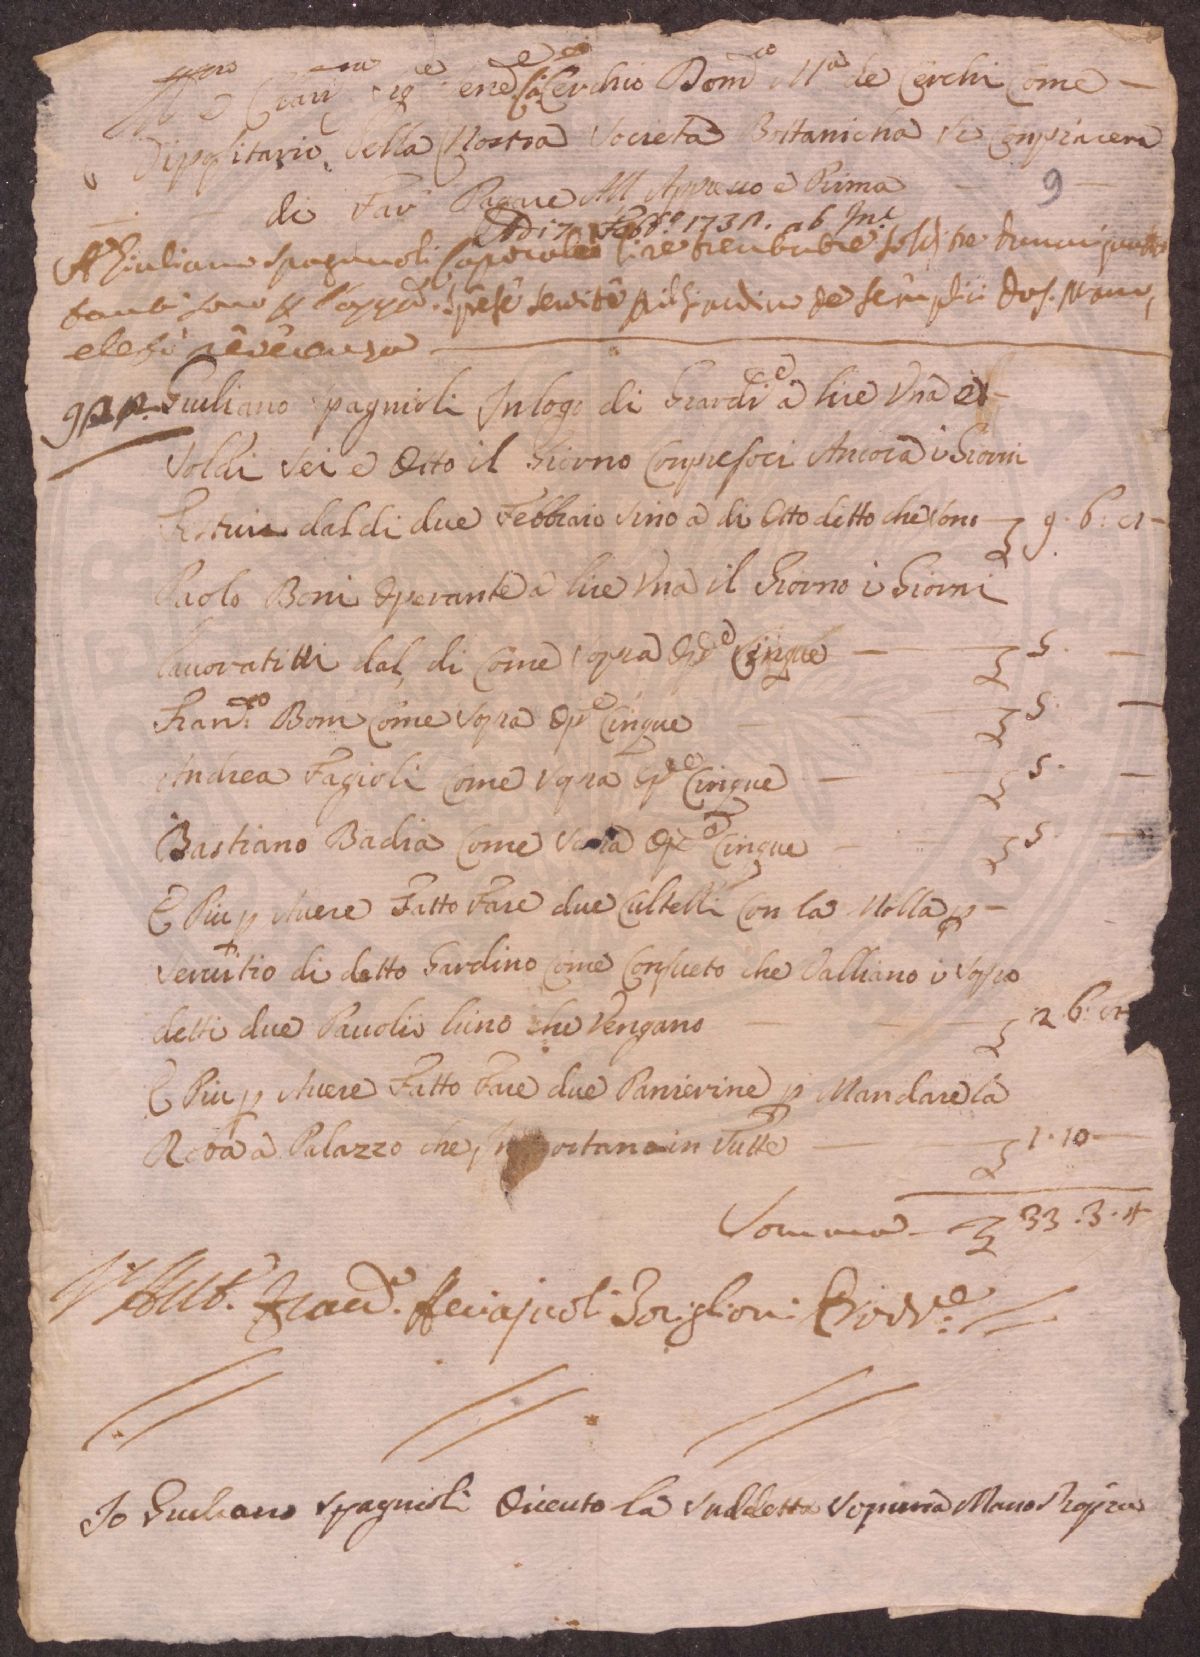 Sig.e Cerchio Dom.co M.a de Cerchi Come
Dipositario della Nostra Società Bottanicha si Conpiacerà
di Far Pagare All Appresso e Prima
9
Adi 7 Febb.o 173 ab Inc.
A Giuliano Spagnuoli Caporale lire trentatre soldi tre danari quattro
tanti sono p spese servite p il Giardino de semplici
e le fo reverenza
Giuliano Spagnioli In logo di Giardi.e a lire Una e
Soldi Sei e Otto il Giorno Conpresoci Ancora i Giorni
Festivi dal di due Febbraio Sino a di Otto detto che Sono 9. 6: 8
Paolo Boni Operante a lire Una il Giorno i Giorni
lavoratitti dal, di Come Sopra Op.e Cinque 5.
Fran.co Boni Come Sopra Op.e Cinque 5.
Andrea Fagioli Come Sopra Op.e Cinque 5.
Bastiano Badia Come Sopra Op.e Cinque 5.
E Piu p Avere Fatto Fare due Cultelli Con la Molla p
Servitio di detto Gardino Come Consueto che Valliano i Sopra
detti due Pavoli luno che Vengano 2 6: 8
E Piu p Avere Fatto Fare due Panierine p Mandare la
Roba a Palazzo che Inportano in Tutte 1. 10
Somma 33. 3. 4
Io Giuliano Spagnioli Ricevto la Suddetta Somma Mano Propia